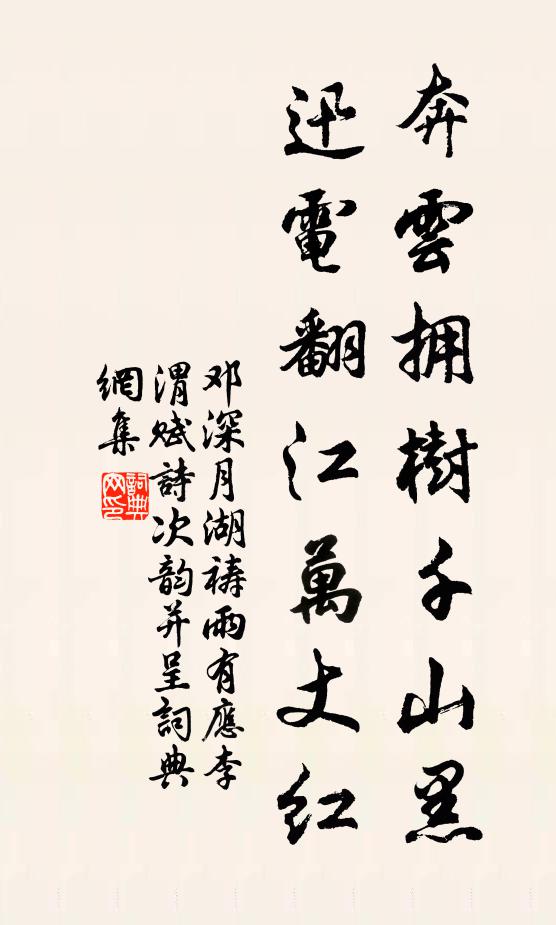 奔雲拥樹千山黑
迅電翻江萬丈红
邓深月湖祷雨有應李
渭赋詩次韵并呈詞典
網集
詞典
网印